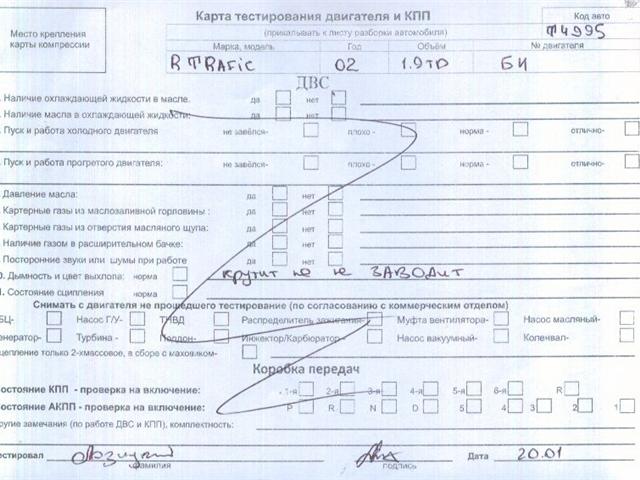 Место крепления карты компрессии
Карта тестирования двигателя и КПП
(прикалывать к листу разборки автомобиля)
Код авто
T4995
Марка, модель Год Объём № двигателя
R TRAFic 02 1.9TD БИ
ДВС
Наличие охлаждающей жидкости в масле. да нет
Наличие масла в охлаждающей жидкости: да нет
Пуск и работа холодного двигателя не завёлся- плохо - норма - отлично-
Пуск и работа прогретого двигателя: не завёлся- плохо - норма - отлично-
Давление масла: да нет
Картерные газы из маслозаливной горловины : да нет
Картерные газы из отверстия масляного щупа: да нет
Наличие газов в расширительном бачке: да нет
Посторонние звуки или шумы при работе да нет
Дымность и цвет выхлопа: норма крутит но не ЗАВОДИТ
Состояние сцепления норма
Снимать с двигателя не прошедшего тестирование (по согласованию с коммерческим отделом)
БЦ- Насос Г/У- ТНВД Распределитель зажигания- Муфта вентилятора- Насос масляный-
енератор- Турбина - Поддон- Инжектор/Карбюратор- Насос вакуумный- Коленвал-
цепление только 2-хмассовое, в сборе с маховиком-
Коробка передач
остояние КПП - проверка на включение: 1-я 2-я 3-я 4-я 5-я 6-я R
остояние АКПП - проверка на включение: P R N D 5 4 3 2 1
ругие замечания (по работе ДВС и КПП), комплектность:
естировал фамилия подпись Дата 20.01